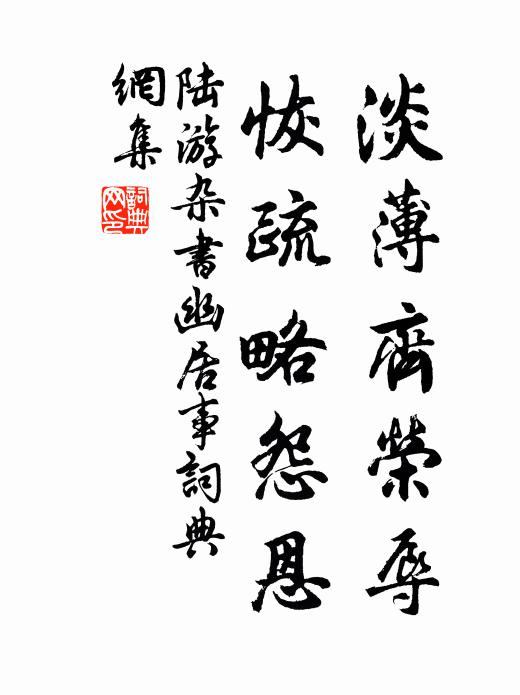 淡薄齊榮辱
恢疏略怨恩
陆游杂書幽居事詞典
網集
詞典
网印